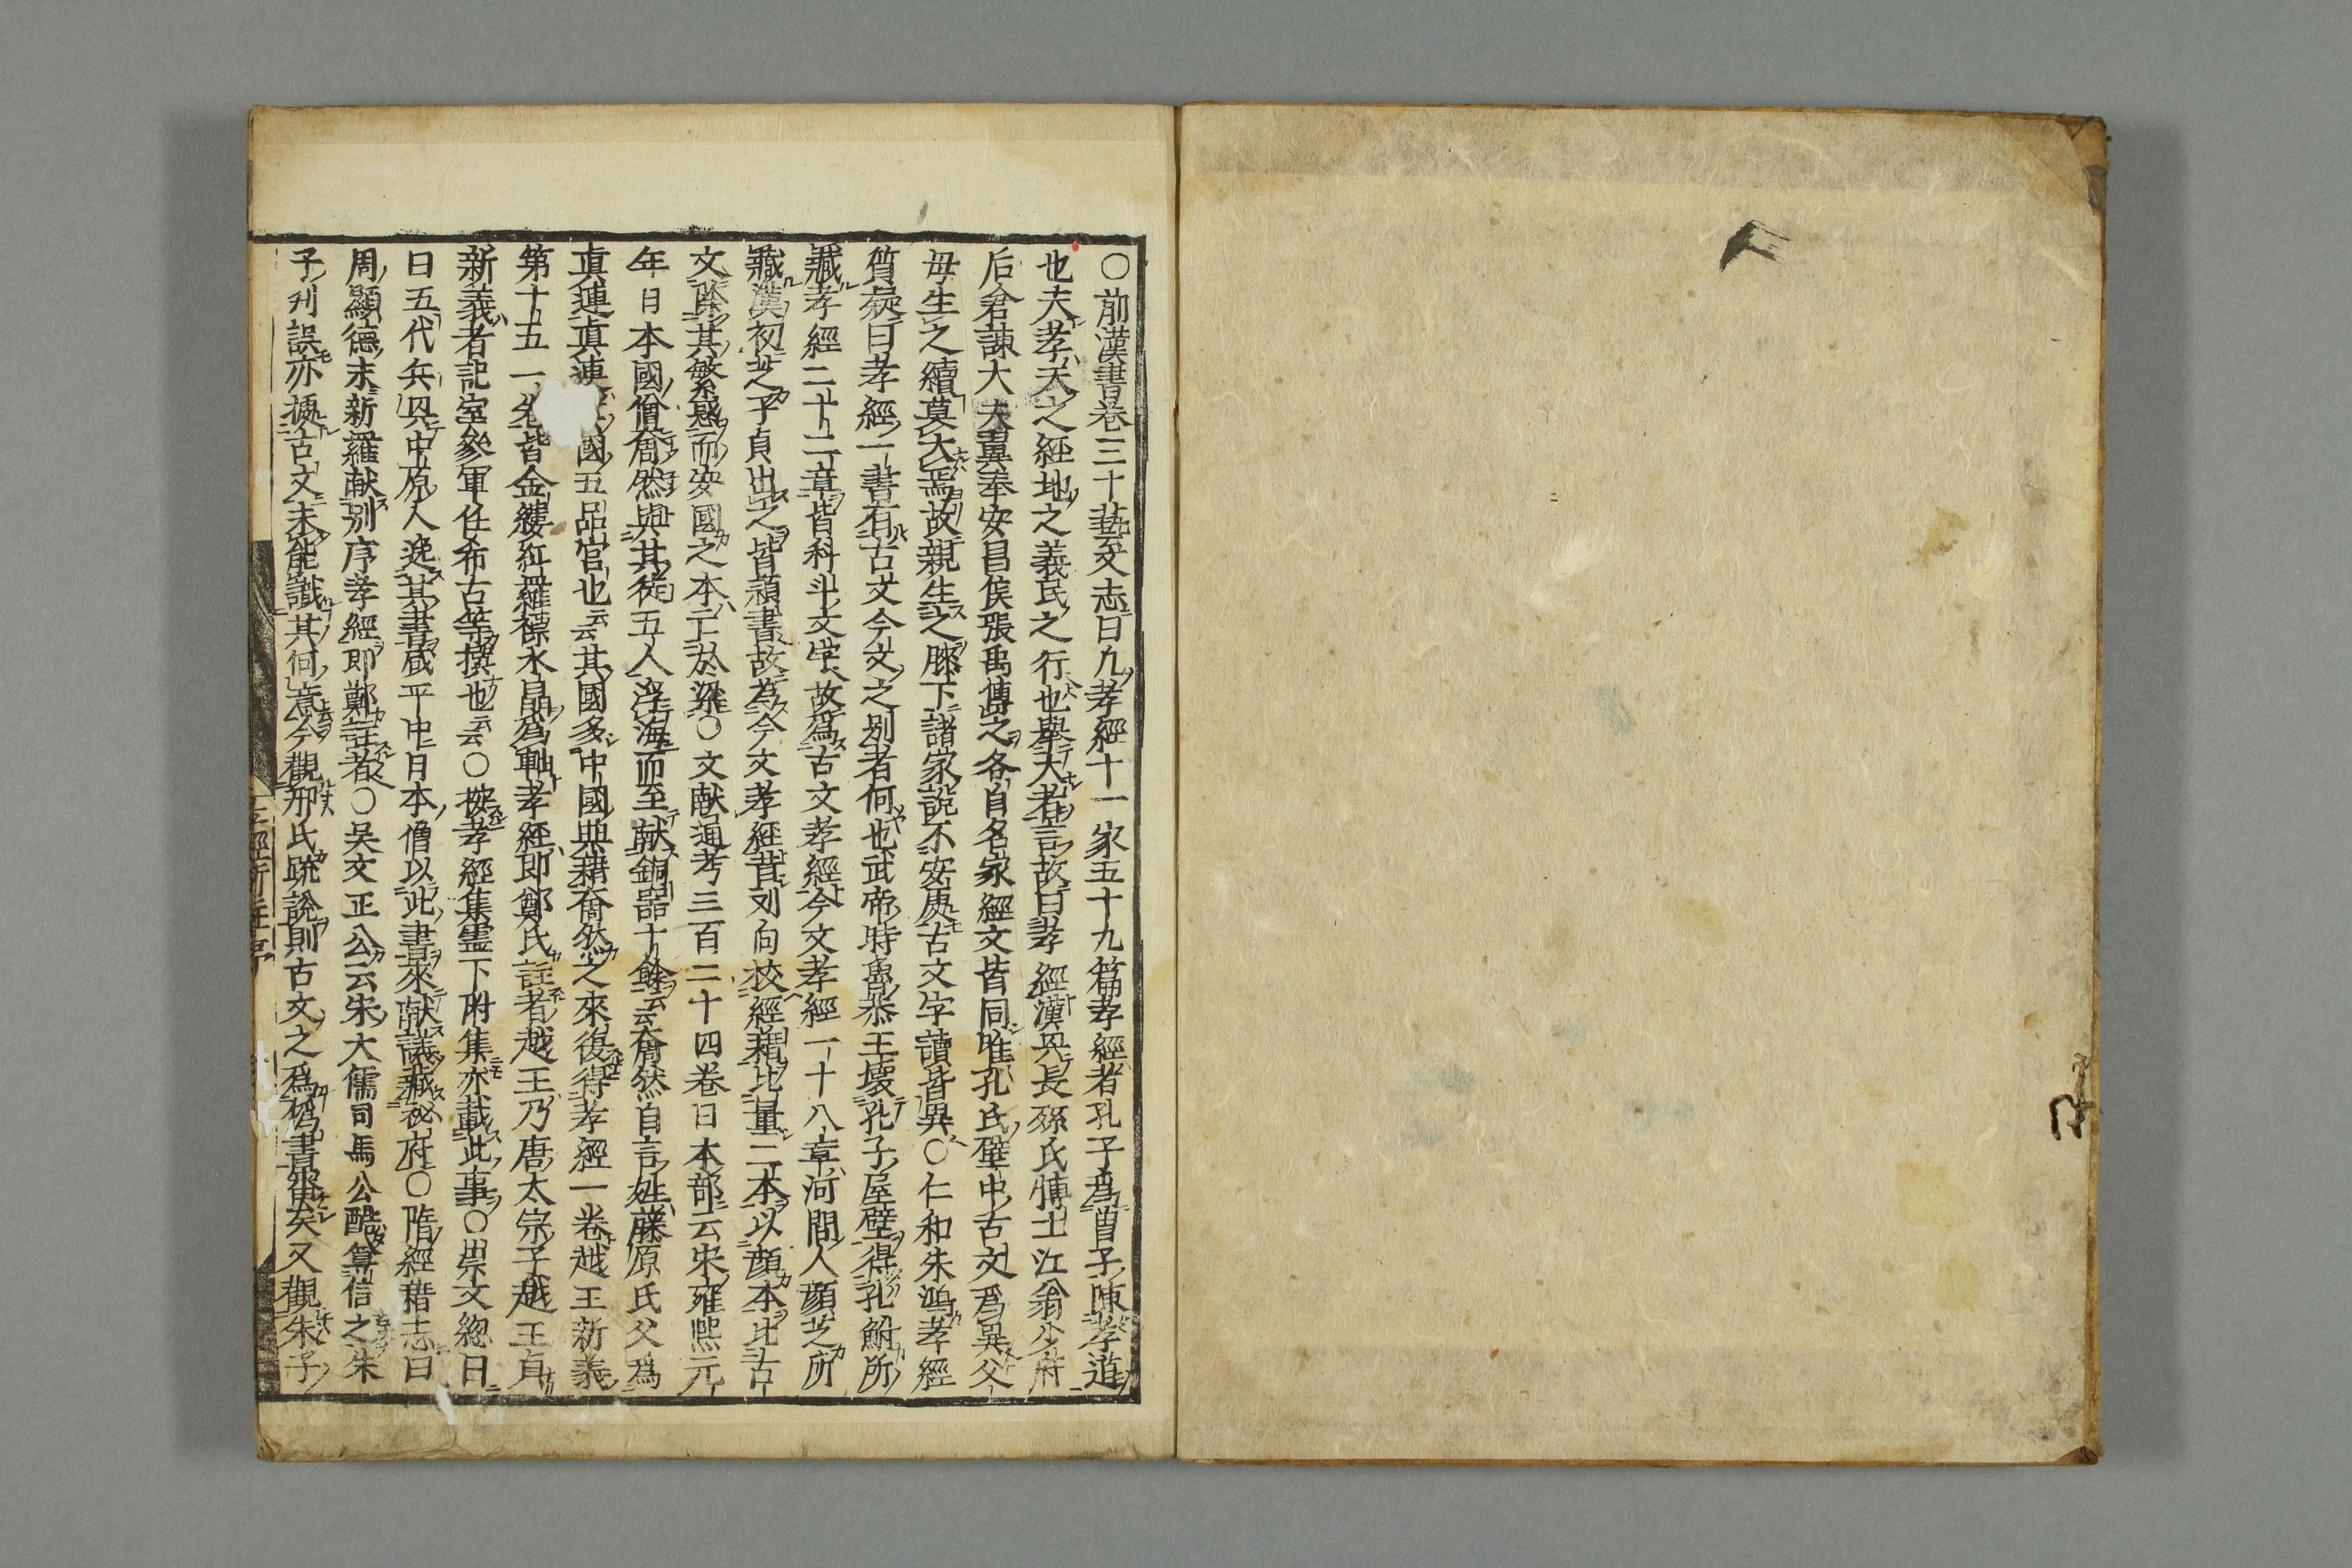 〇前漢書卷三十藝文志曰九孝經十一家五十九篇孝經者孔子爲曽子陳孝道
也夫孝天之經地之義民之行也舉大者言故曰孝經漢興長孫氏愽士江翁少府
后倉諌大夫翼奉安昌侯張禹傳之各自名家經文皆同唯孔氏壁中古文爲異父
母生之續莫大焉故親生之膝下諸家說不安處古文字讀皆異〇仁和朱鴻孝經
質疑曰孝經一書有古文今文之別者何也武帝時魯恭王壞孔子屋壁得孔鮒所
藏孝經二十二章皆科斗文字故爲古文孝經今文孝經一十八章河間人顔芝所
藏漢初芝子貞出之皆隷書故為今文孝經昔刘向挍經藉比量二本以顔本比古
文除其繁惑而安國之本亡於梁〇文献通考三百二十四卷日本部云宋雍熙元
年日本國僧奝然與其徒五人浮海而至献銅器十餘云云奝然自言姓藤原氏父爲
眞連眞連國五品官也云云其國多中國典藉奝然之來復得孝經一卷越王新義
第十五一卷皆金縷紅羅褾水晶爲軸孝經即鄭氏註者越王乃唐太宗子越王貞
新義者記室參軍任希古等撰也云云〇按孝經集霊下附集亦載此事〇崇文緫曰
曰五代兵興中原人逸其書咸平中日本僧以此書來献議藏祕府〇隋經籍志曰
周顯德末新羅献別序孝經即鄭註者〇吳文正公云朱大儒司馬公酷篤信之朱
子刋誤亦據古文未能識其何意今觀邢氏䟽說則古文之爲僞書審矣又觀朱子